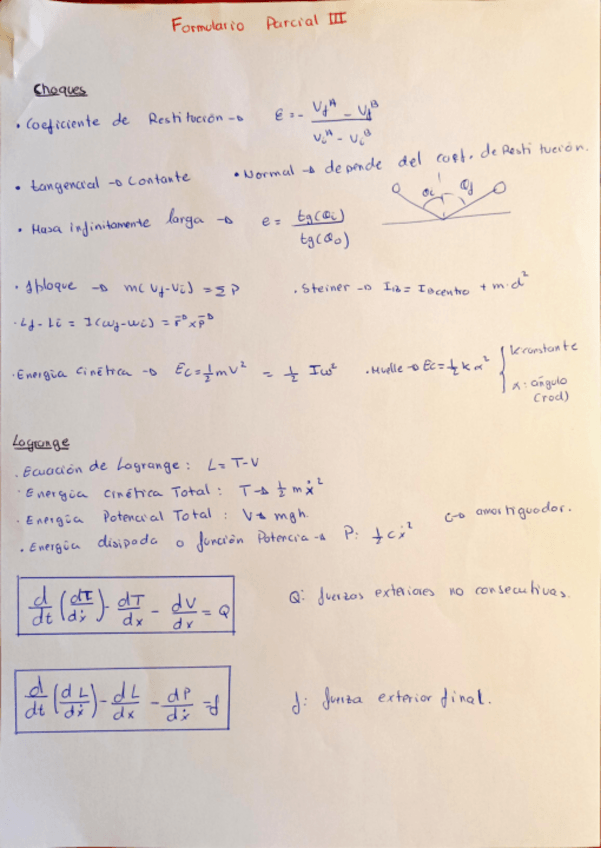 Formulario Parcial III
Choques
• Coeficiente de Restitución → e = - (Vf^A - Vf^B) / (Vi^A - Vi^B)
• tangencial → Contante • Normal → depende del coef. de Restitución.
• Masa infinitamente larga → e = tg(θi) / tg(θo) θi θf
• 1 bloque → m(Vf-Vi) = Σ P • Steiner → I_B = I_Dcentro + m·d²
• Lf - Li = I(ωf-ωi) = r × p
• Energía Cinética → Ec = ½ m v² = ½ I ω² • Muelle → Ec = ½ k α² { K constante
α: ángulo
(rad)
Lagrange
• Ecuación de Lagrange: L = T-V
• Energía Cinética Total: T → ½ m ẋ²
• Energía Potencial Total: V → mgh.
• Energía disipada o función Potencia → P: ½ c ẋ² C → amortiguador.
d/dt (dT/dẋ) - dT/dx - dV/dx = Q Q: fuerzas exteriores no consecutivas.
d/dt (dL/dẋ) - dL/dx - dP/dẋ = f f: fuerza exterior final.